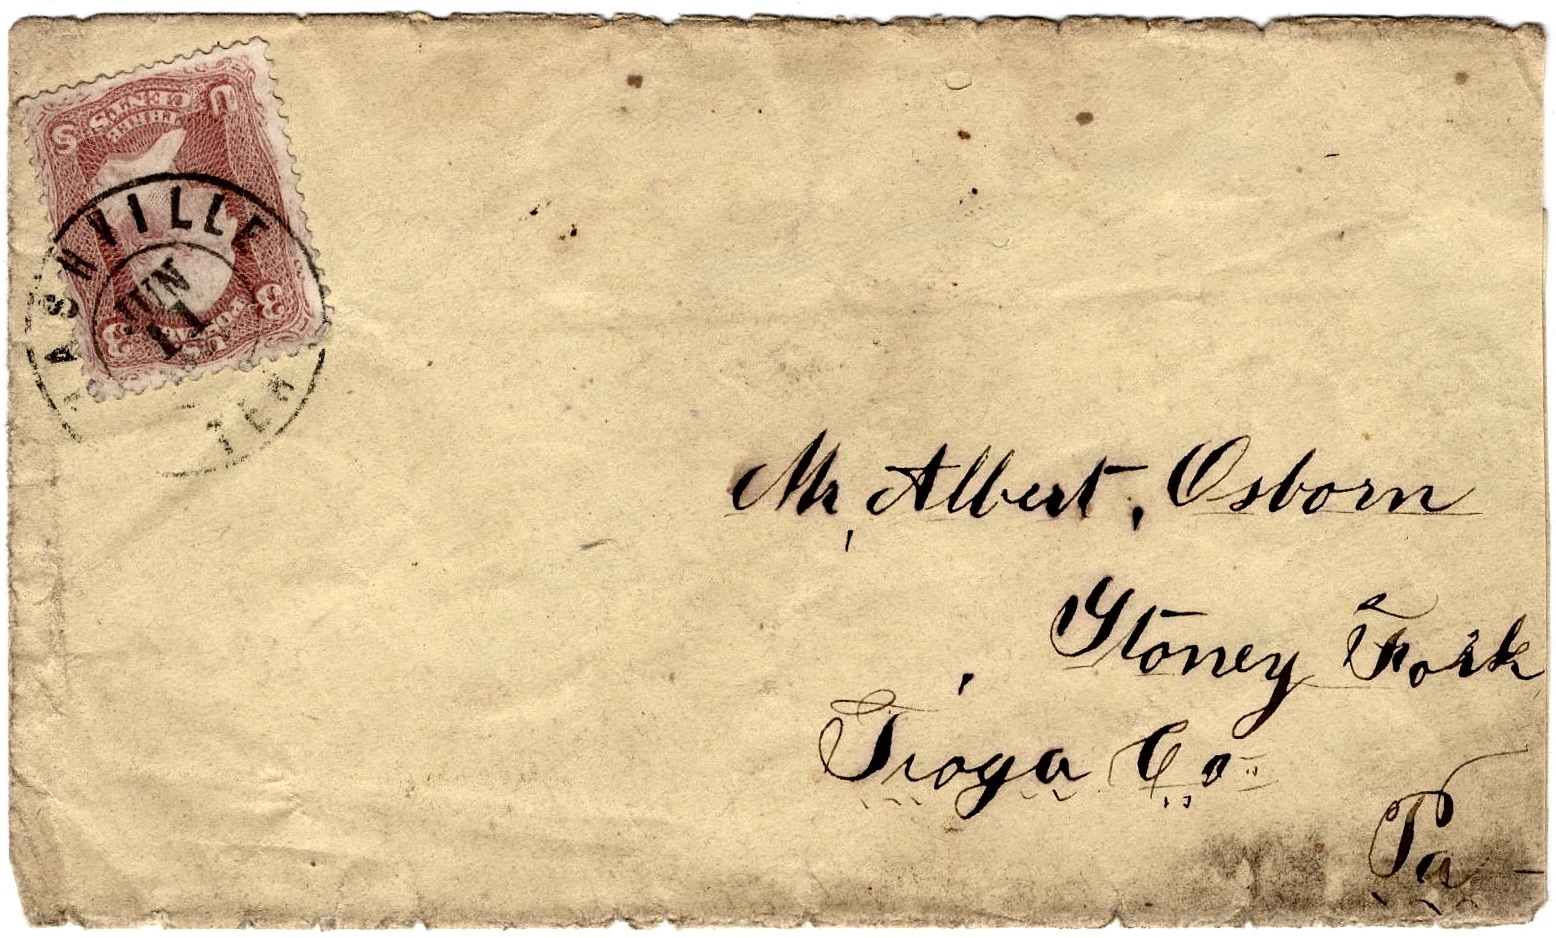 U S
THREE CENTS
U.S. POSTAGE
3 3
NASHVILLE
JUN
11
TEN
Mr, Albert, Osborn
Stoney Fork
Tioga Co
Pa